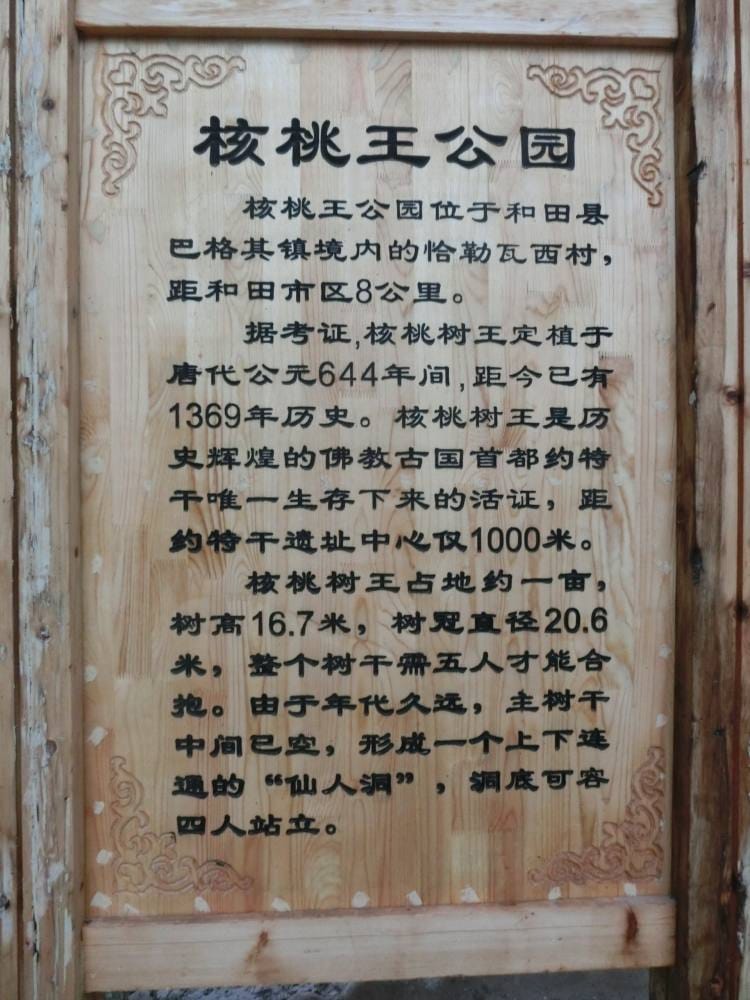 核桃王公园
核桃王公园位于和田县
巴格其镇境内的恰勒瓦西村，
距和田市区8公里。
据考证,核桃树王定植于
唐代公元644年间,距今已有
1369年历史。核桃树王是历
史辉煌的佛教古国首都约特
干唯一生存下来的活证，距
约特干遗址中心仅1000米。
核桃树王占地约一亩，
树高16.7米，树冠直径20.6
米，整个树干需五人才能合
抱。由于年代久远，主树干
中间已空，形成一个上下连
通的“仙人洞”，洞底可容
四人站立。